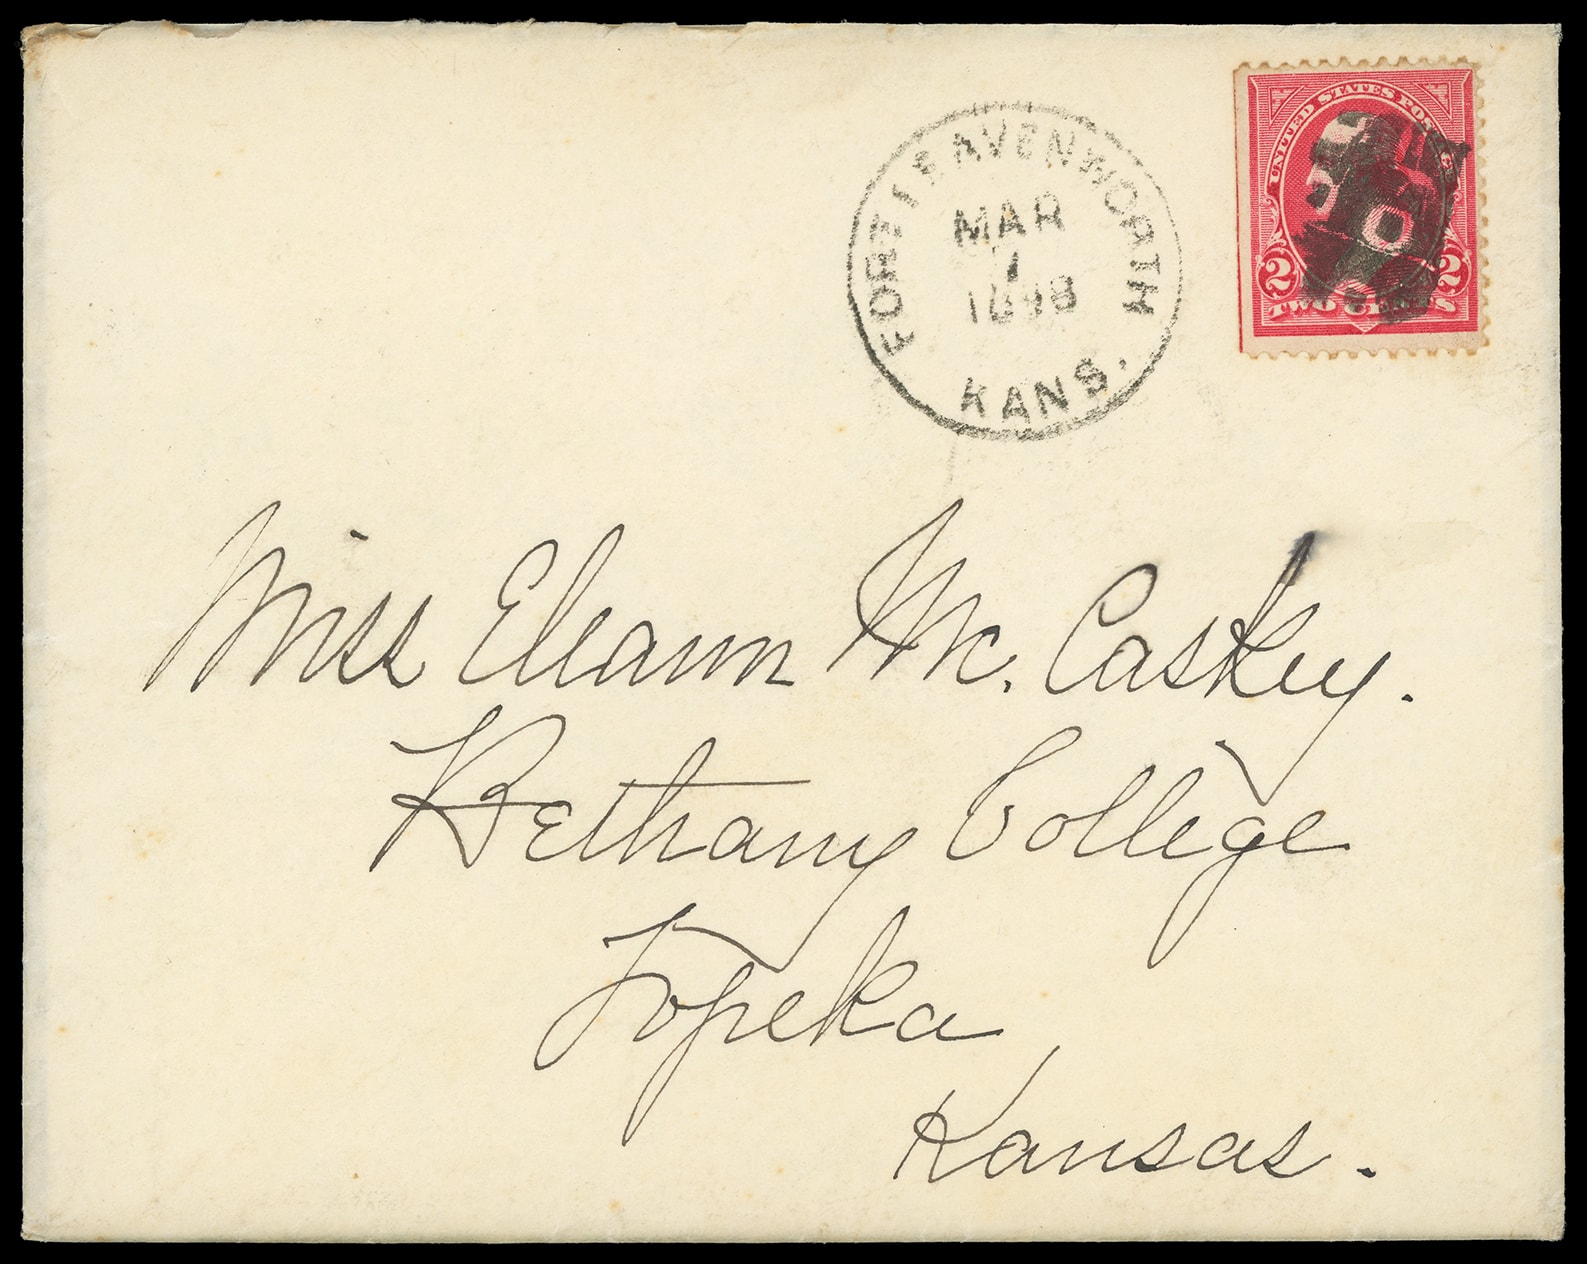 UNITED STATES POSTAGE
FORT LEAVENWORTH
MAR
7
1898
KANS.
2 2
TWO CENTS
Miss Eleann McCaskey.
Bethany College
Topeka
Kansas.